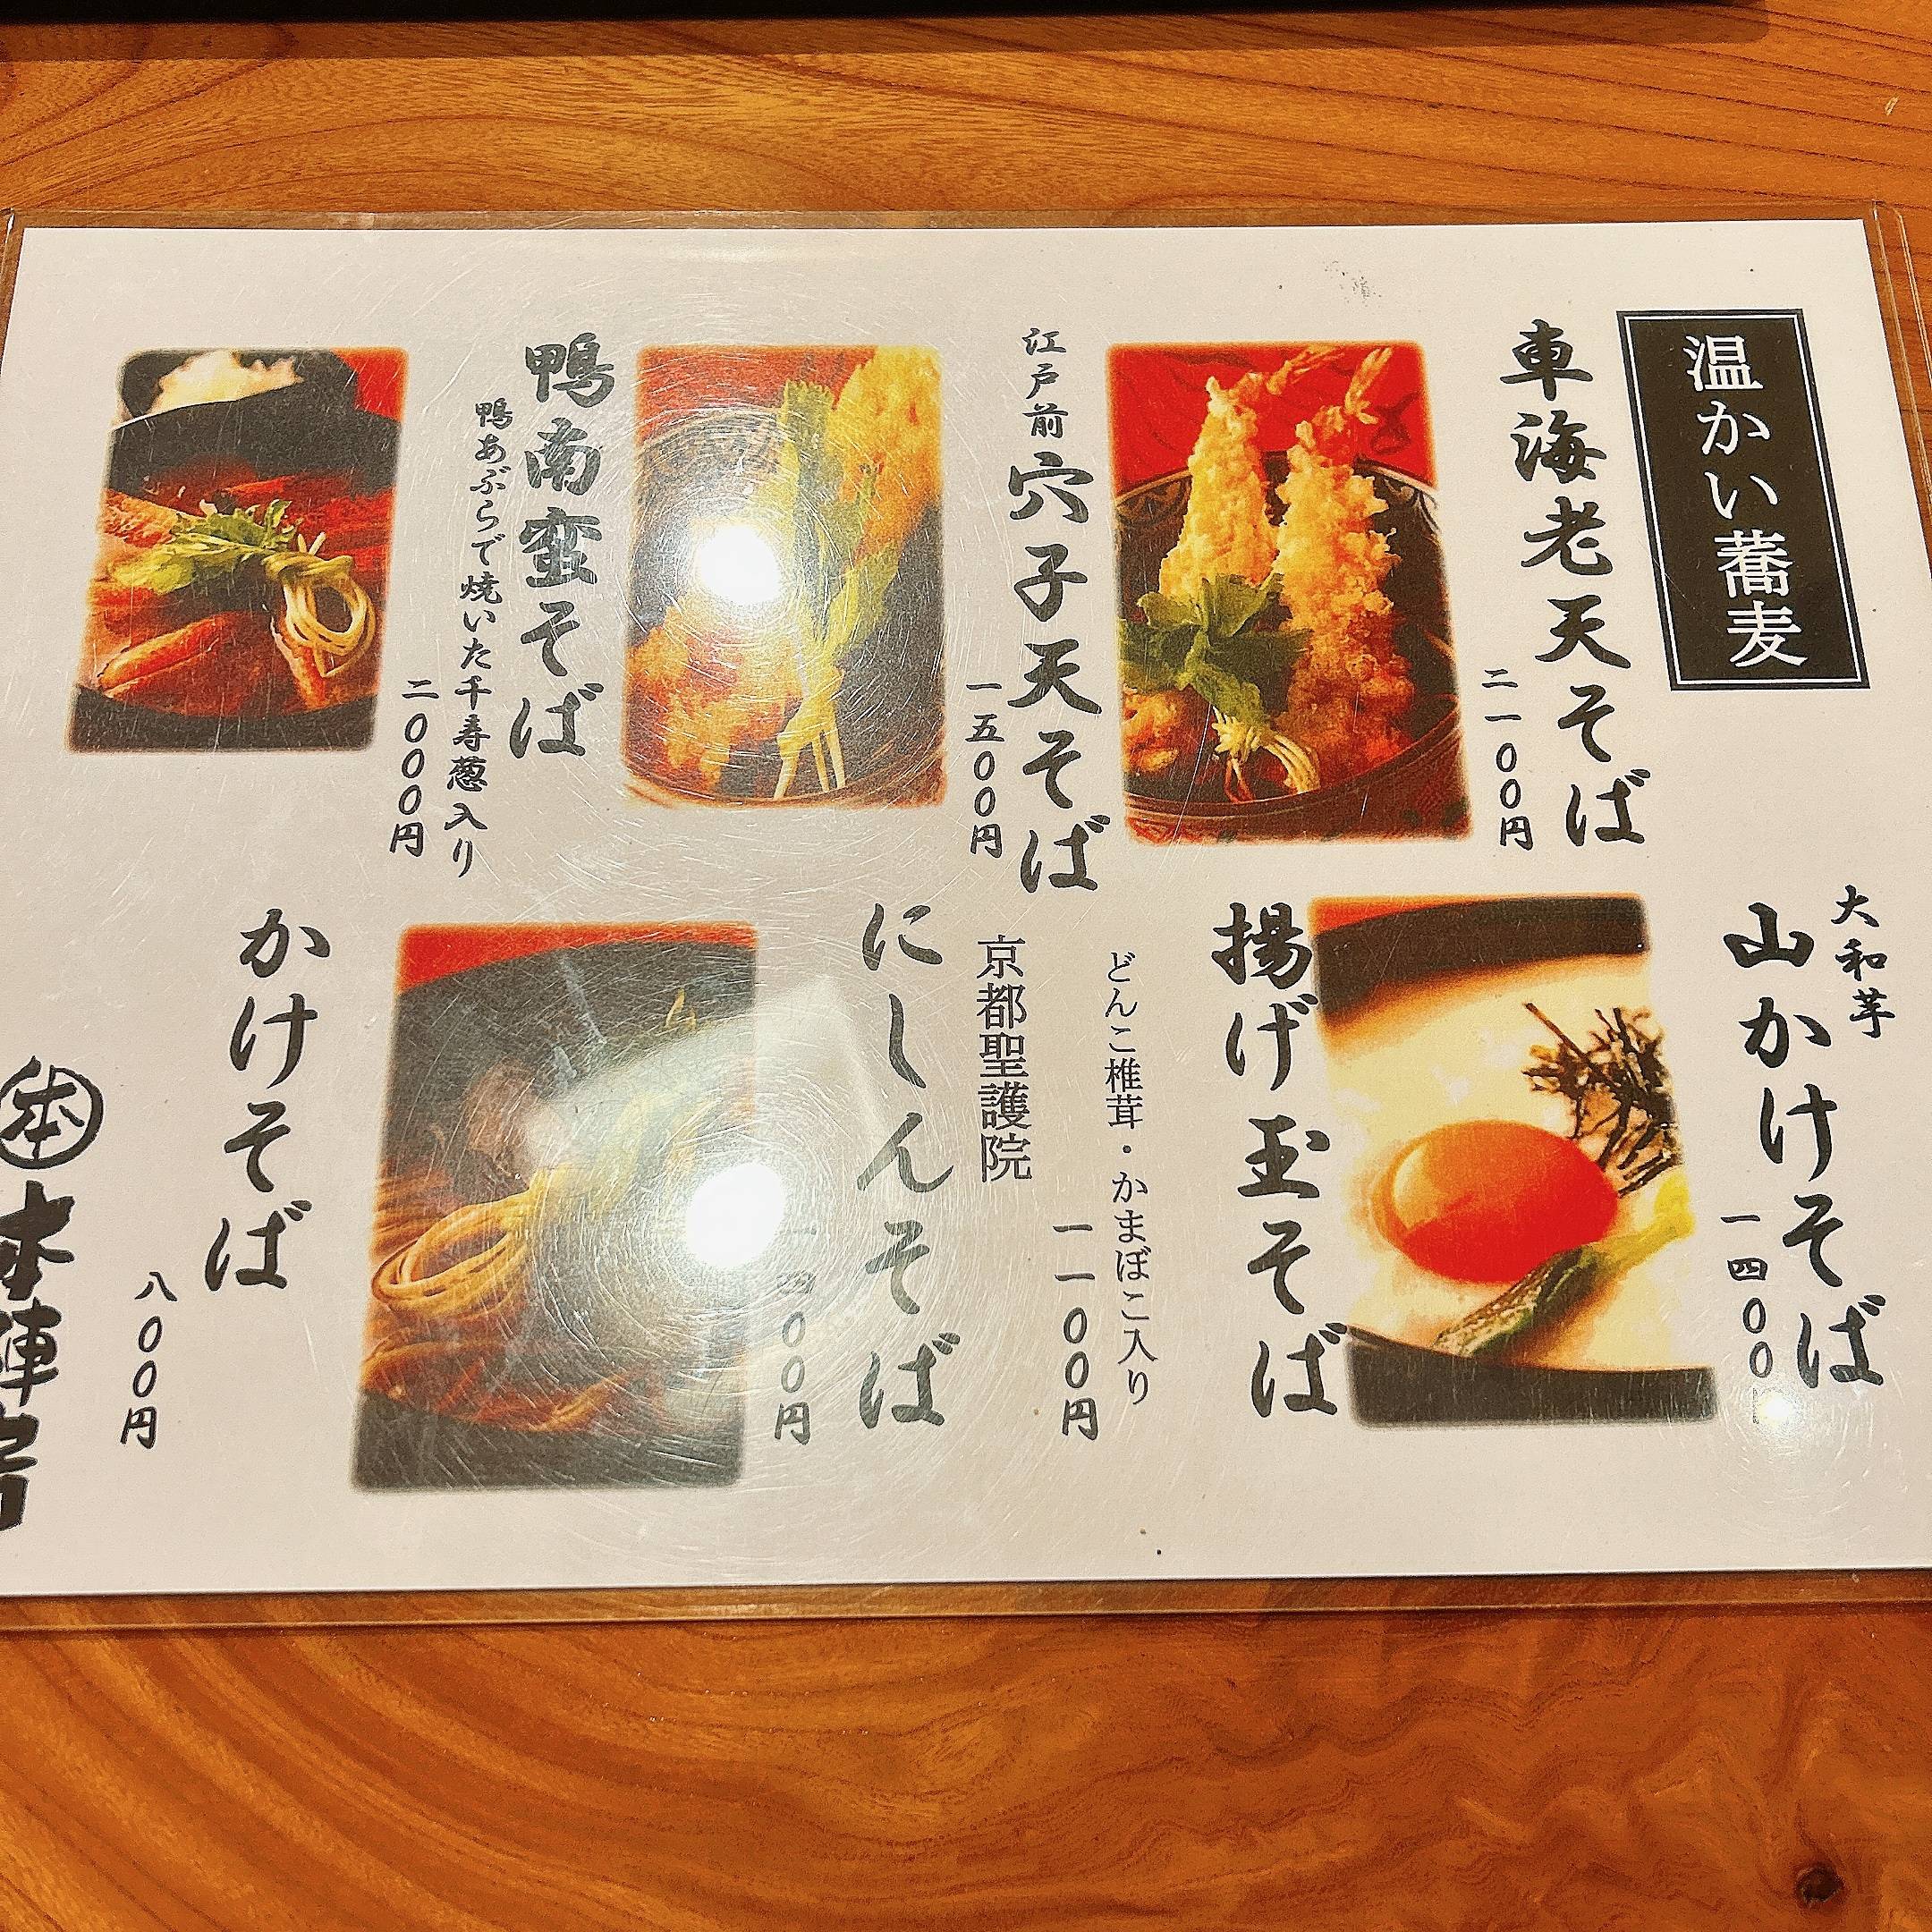 温かい蕎麦
車海老天そば
二一〇〇円
江戸前
穴子天そば
一五〇〇円
鴨南蛮そば
鴨あぶらで焼いた千寿葱入り
二〇〇〇円
大和芋
山かけそば
一四〇〇円
揚げ玉そば
どんこ椎茸・かまぼこ入り
一一〇〇円
京都聖護院
にしんそば
〇〇円
かけそば
八〇〇円
本陣房